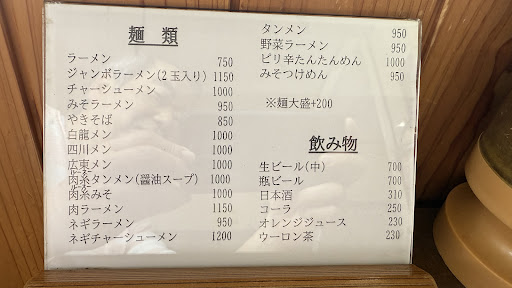 麺　類
ラーメン 750
ジャンボラーメン(2玉入り) 1150
チャーシューメン 1000
みそラーメン 950
やきそば 850
白龍メン 1000
四川メン 1000
広東メン 1000
肉糸タンメン(醤油スープ) 1000
肉糸みそ 1000
肉ラーメン 1150
ネギラーメン 950
ネギチャーシューメン 1200
タンメン 950
野菜ラーメン 950
ピリ辛たんたんめん 1000
みそつけめん 950
※麺大盛+200
飲み物
生ビール(中) 700
瓶ビール 700
日本酒 310
コーラ 250
オレンジジュース 230
ウーロン茶 230